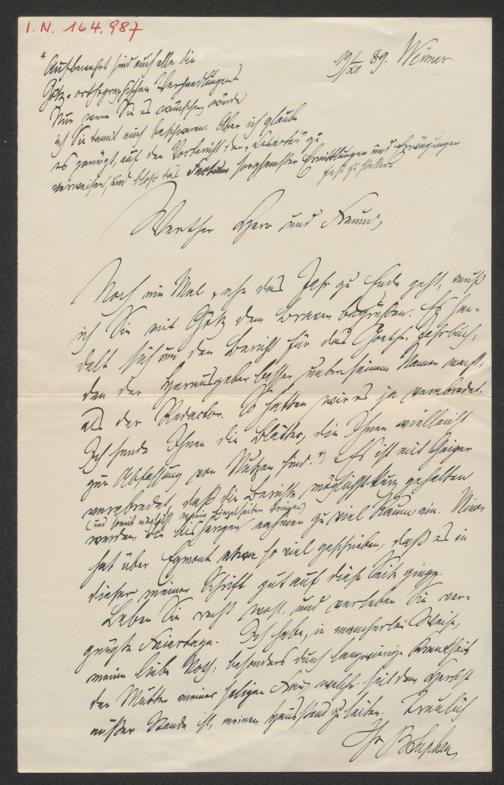 I. N. 164.987
19/XII 89. Weimar
* Aufbewahrt sind auch alle die
Götz-orthographischen Verhandlungen
Nur wenn Sie es wünschen, würde
ich Sie damit noch beschweren. Aber ich glaube
es genügt, auf den Vorbericht der Lesarten zu
verweisen, und bloß das Factum sorghamster Ermittlungen und Erwägungen
fest zu stellen
Werther Herr und Freund,
Noch ein Mal, ehe das Jahr zu Ende geht, muß
ich Sie mit Götz dem braven begrüßen. Es han-
delt sich um den Bericht für das Goethe-Jahrbuch,
den der Herausgeber besser unter seinem Namen macht,
als der Redactor. So hatten wir es ja verabredet.
Ich sende Ihnen die Blätter, die Ihnen vielleicht
zur Abfassung von Nutzen sind.*) Es ist mit Geiger
verabredet, daß die Berichte möglichst kurz gehalten
(und somit möglichst wenig Einzelheiten bringen)
werden, die bisherigen nahmen zu viel Raum ein. Minor
hat über Egmont so viel geschrieben, daß es in
dieser meiner Schrift gut auf diese Seite ginge.
Leben Sie recht wohl, und verleben Sie ver-
gnügte Feiertage. Ich habe, in mancherlei Weise,
meine liebe Noth, besonders durch langwierige Krankheit
der Mutter meiner seligen Frau, welche seit dem Herbst
außer Stande ist, meinen Hausstand zu leiten. Treulich
Ihr B Suphan